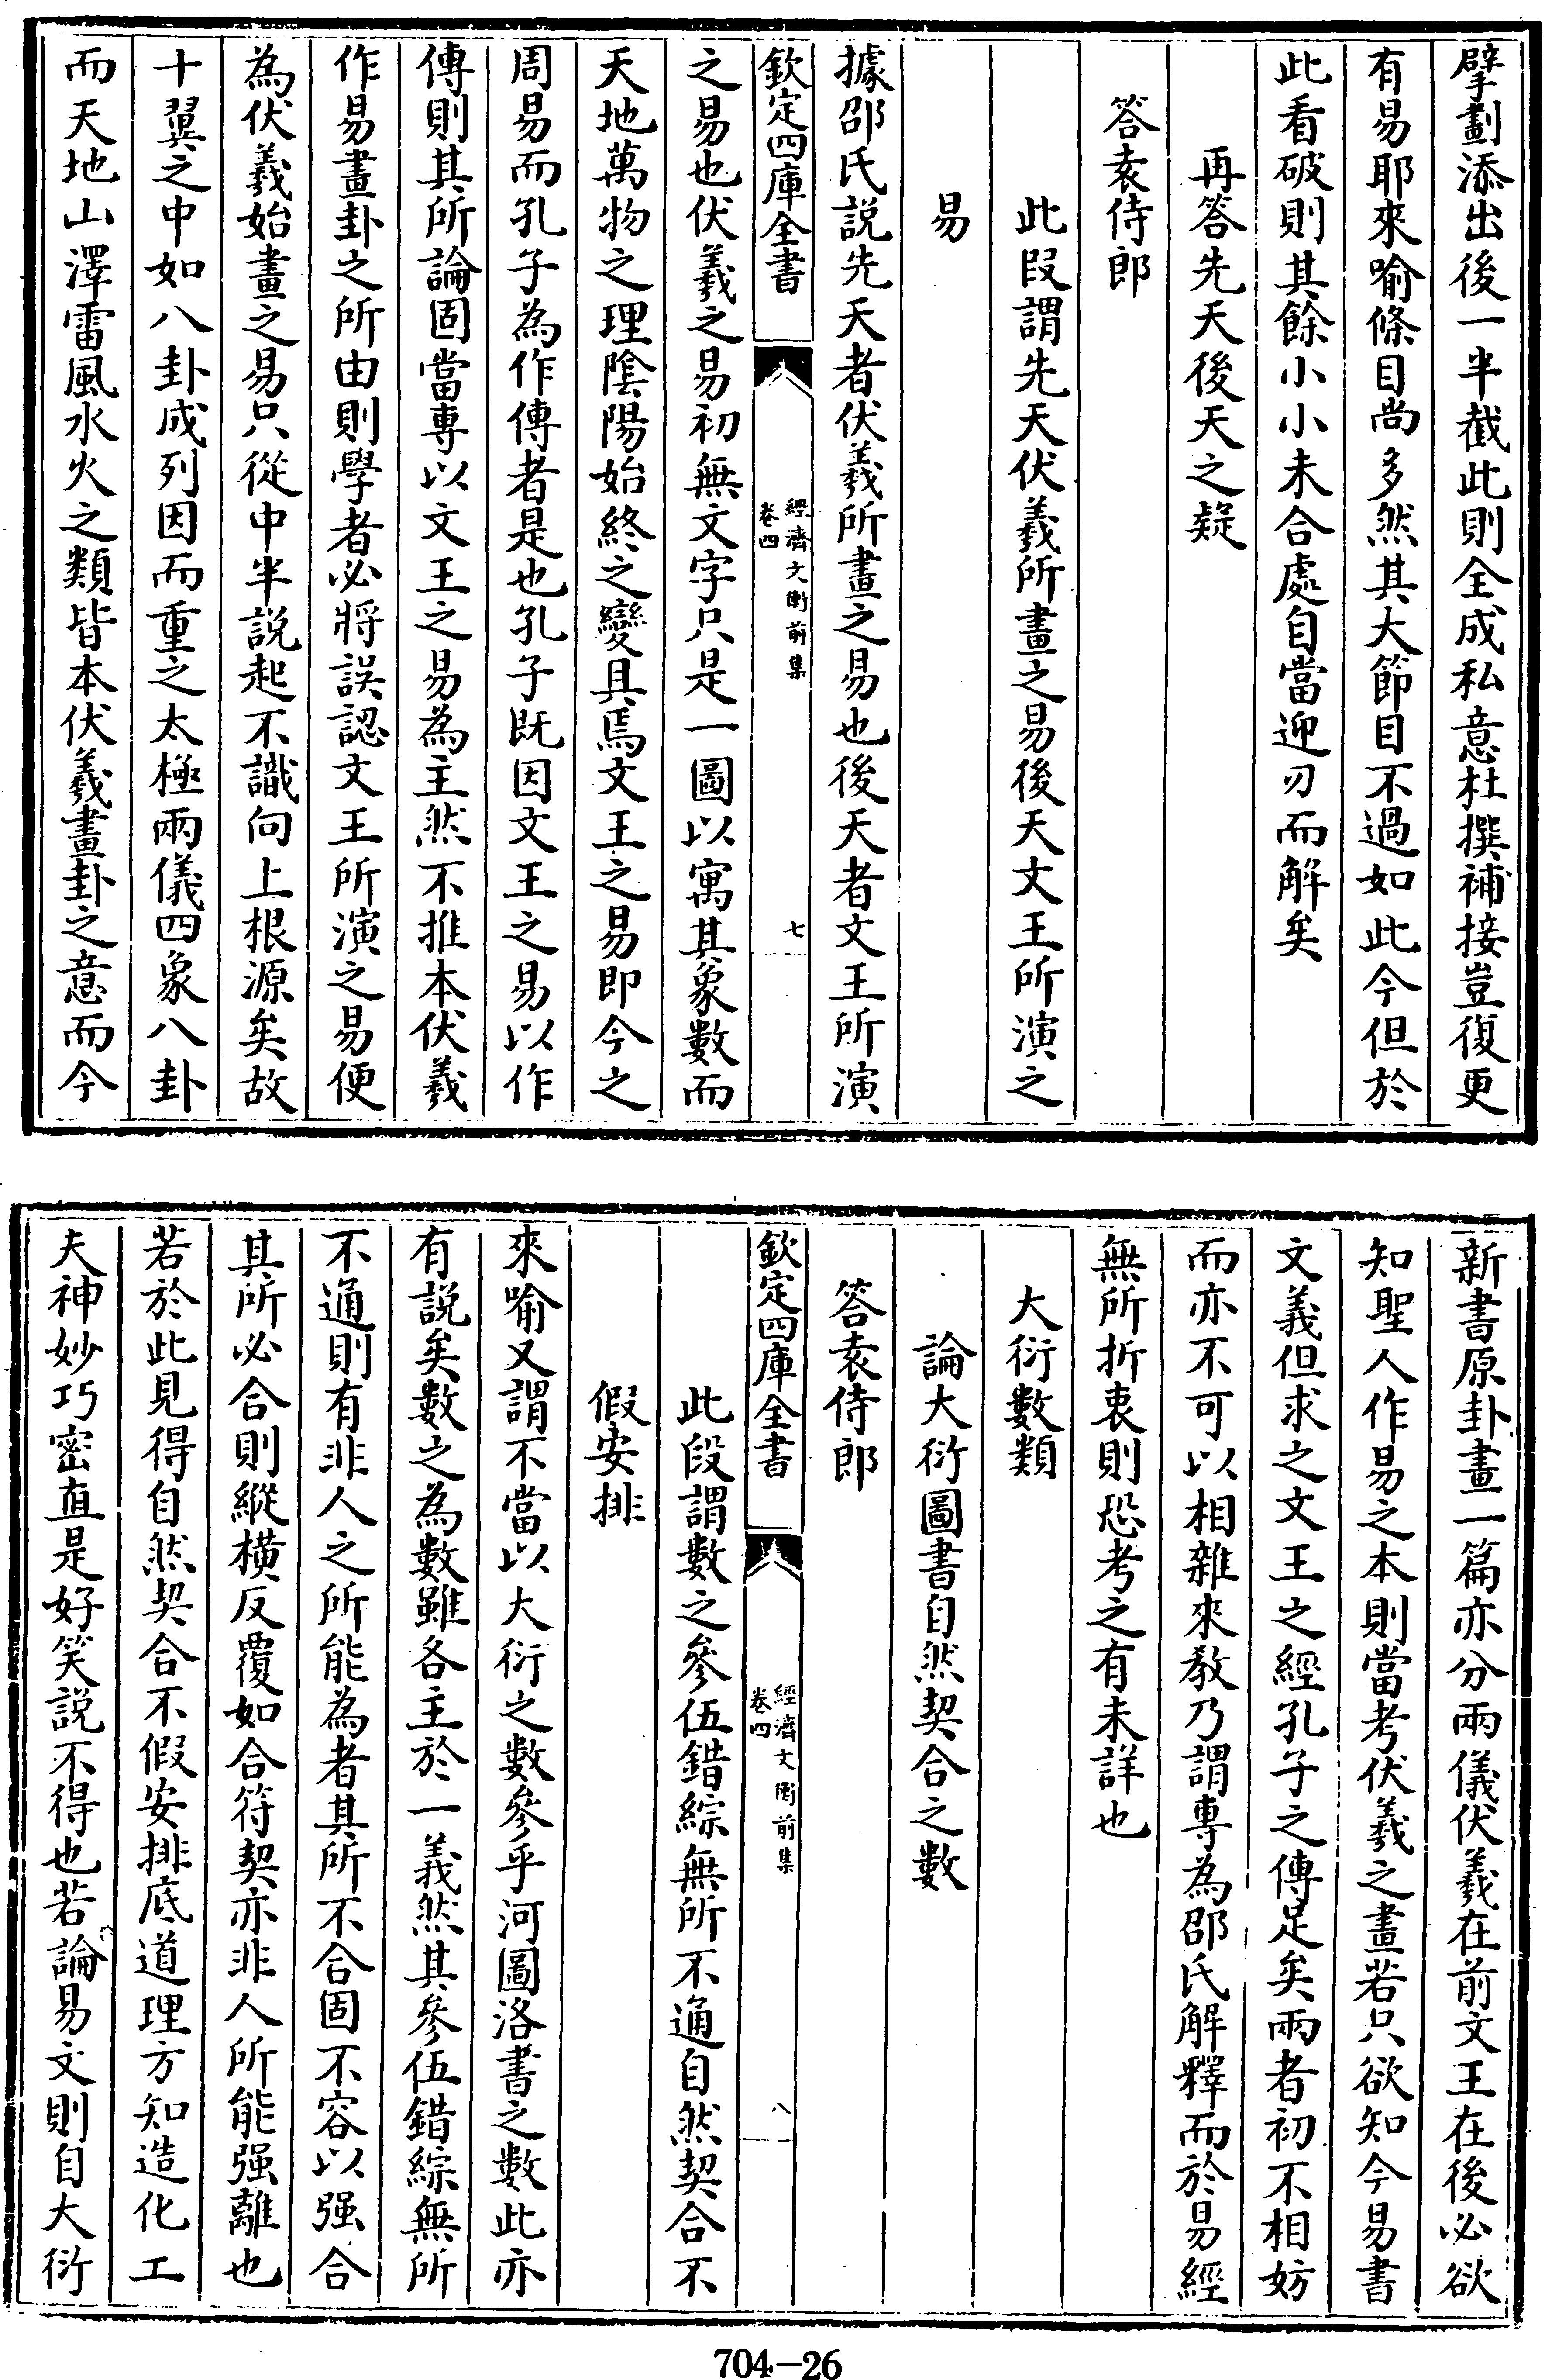 擘劃添出後一半截此則全成私意杜撰補接豈復更
有易耶來喻條目尚多然其大節目不過如此今但於
此看破則其餘小小未合處自當迎刃而解矣
再答先天後天之疑
答袁侍郎
此段謂先天伏羲所畫之易後天文王所演之
易
據邵氏説先天者伏羲所畫之易也後天者文王所演
欽定四庫全書
經濟文衡前集
卷四
七
之易也伏羲之易初無文字只是一圖以寓其象數而
天地萬物之理陰陽始終之變具焉文王之易即今之
周易而孔子為作傳者是也孔子既因文王之易以作
傳則其所論固當專以文王之易為主然不推本伏羲
作易畫卦之所由則學者必將誤認文王所演之易便
為伏羲始畫之易只從中半説起不識向上根源矣故
十翼之中如八卦成列因而重之太極兩儀四象八卦
而天地山澤雷風水火之類皆本伏羲畫卦之意而今
新書原卦畫一篇亦分兩儀伏羲在前文王在後必欲
知聖人作易之本則當考伏羲之畫若只欲知今易書
文義但求之文王之經孔子之傳足矣兩者初不相妨
而亦不可以相雜來教乃謂專為邵氏解釋而於易經
無所折衷則恐考之有未詳也
大衍數類
論大衍圖書自然契合之數
答袁侍郎
欽定四庫全書
經濟文衡前集
卷四
八
此段謂數之參伍錯綜無所不通自然契合不
假安排
來喻又謂不當以大衍之數參乎河圖洛書之數此亦
有説矣數之為數雖各主於一義然其參伍錯綜無所
不通則有非人之所能為者其所不合固不容以强合
其所必合則縱橫反覆如合符契亦非人所能强離也
若於此見得自然契合不假安排底道理方知造化工
夫神妙巧密直是好笑説不得也若論易文則自大衍
704-26